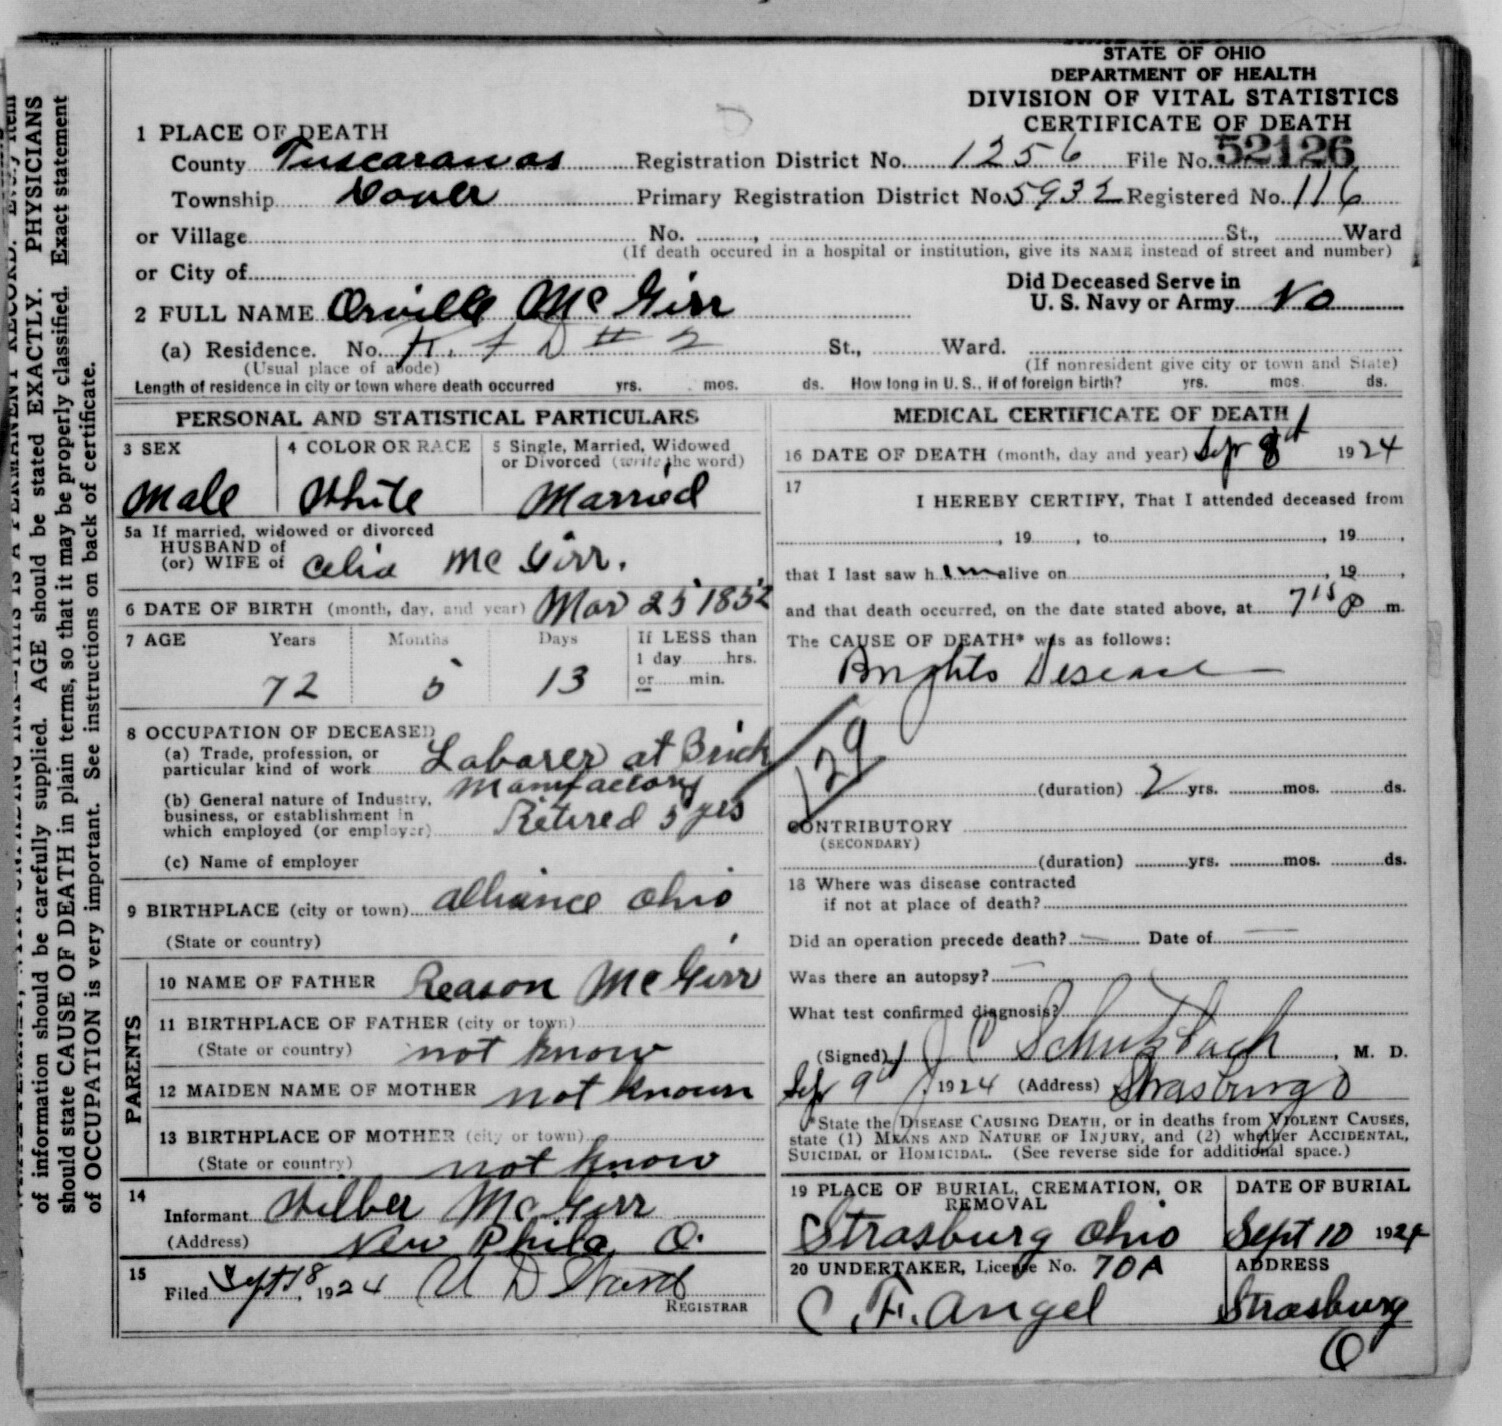 STATE OF OHIO
DEPARTMENT OF HEALTH
DIVISION OF VITAL STATISTICS
CERTIFICATE OF DEATH
1 PLACE OF DEATH
County Tuscarawas Registration District No. 1256 File No. 52126
Township Dover Primary Registration District No. 5932 Registered No. 116
or Village No. , St., Ward
(If death occured in a hospital or institution, give its NAME instead of street and number)
or City of
Did Deceased Serve in
U. S. Navy or Army No
2 FULL NAME Orville McGirr
(a) Residence. No. R. F D # 2 St., Ward.
(Usual place of abode) (If nonresident give city or town and State)
Length of residence in city or town where death occurred yrs. mos. ds. How long in U. S., if of foreign birth? yrs. mos. ds.
PERSONAL AND STATISTICAL PARTICULARS
3 SEX 4 COLOR OR RACE 5 Single, Married, Widowed
or Divorced (write the word)
Male White Married
5a If married, widowed or divorced
HUSBAND of
(or) WIFE of Celia McGirr.
6 DATE OF BIRTH (month, day, and year) Mar 25 1852
7 AGE Years Months Days If LESS than
1 day hrs.
or min.
72 5 13
8 OCCUPATION OF DECEASED
(a) Trade, profession, or
particular kind of work Laborer at Brick
Manufactory
(b) General nature of Industry,
business, or establishment in
which employed (or employer) Retired 5 yrs
(c) Name of employer
9 BIRTHPLACE (city or town) Alliance Ohio
(State or country)
PARENTS
10 NAME OF FATHER Reason McGirr
11 BIRTHPLACE OF FATHER (city or town)
(State or country) not know
12 MAIDEN NAME OF MOTHER not known
13 BIRTHPLACE OF MOTHER (city or town)
(State or country) not know
14
Informant Wilber McGirr
(Address) New Phila, O.
15
Filed Sept 18, 1924
REGISTRAR
MEDICAL CERTIFICATE OF DEATH
16 DATE OF DEATH (month, day and year) Sep 8d 1924
17
I HEREBY CERTIFY, That I attended deceased from
, 19 , to , 19 ,
that I last saw him alive on , 19 ,
and that death occurred, on the date stated above, at 7 15 P m.
The CAUSE OF DEATH* was as follows:
Brights Disease
129
(duration) 2 yrs. mos. ds.
CONTRIBUTORY
(SECONDARY)
(duration) yrs. mos. ds.
18 Where was disease contracted
if not at place of death?
Did an operation precede death? — Date of —
Was there an autopsy? —
What test confirmed diagnosis?
(Signed) J C , M. D.
Sep 9d 1924 (Address) Strasburg O
*State the DISEASE CAUSING DEATH, or in deaths from VIOLENT CAUSES,
state (1) MEANS AND NATURE OF INJURY, and (2) whether ACCIDENTAL,
SUICIDAL or HOMICIDAL. (See reverse side for additional space.)
19 PLACE OF BURIAL, CREMATION, OR
REMOVAL
DATE OF BURIAL
Strasburg Ohio Sept 10 1924
20 UNDERTAKER, License No. 70A ADDRESS
C. F. Angel Strasburg
O
of information should be carefully supplied. AGE should be stated EXACTLY. PHYSICIANS
should state CAUSE OF DEATH in plain terms, so that it may be properly classified. Exact statement
of OCCUPATION is very important. See instructions on back of certificate.